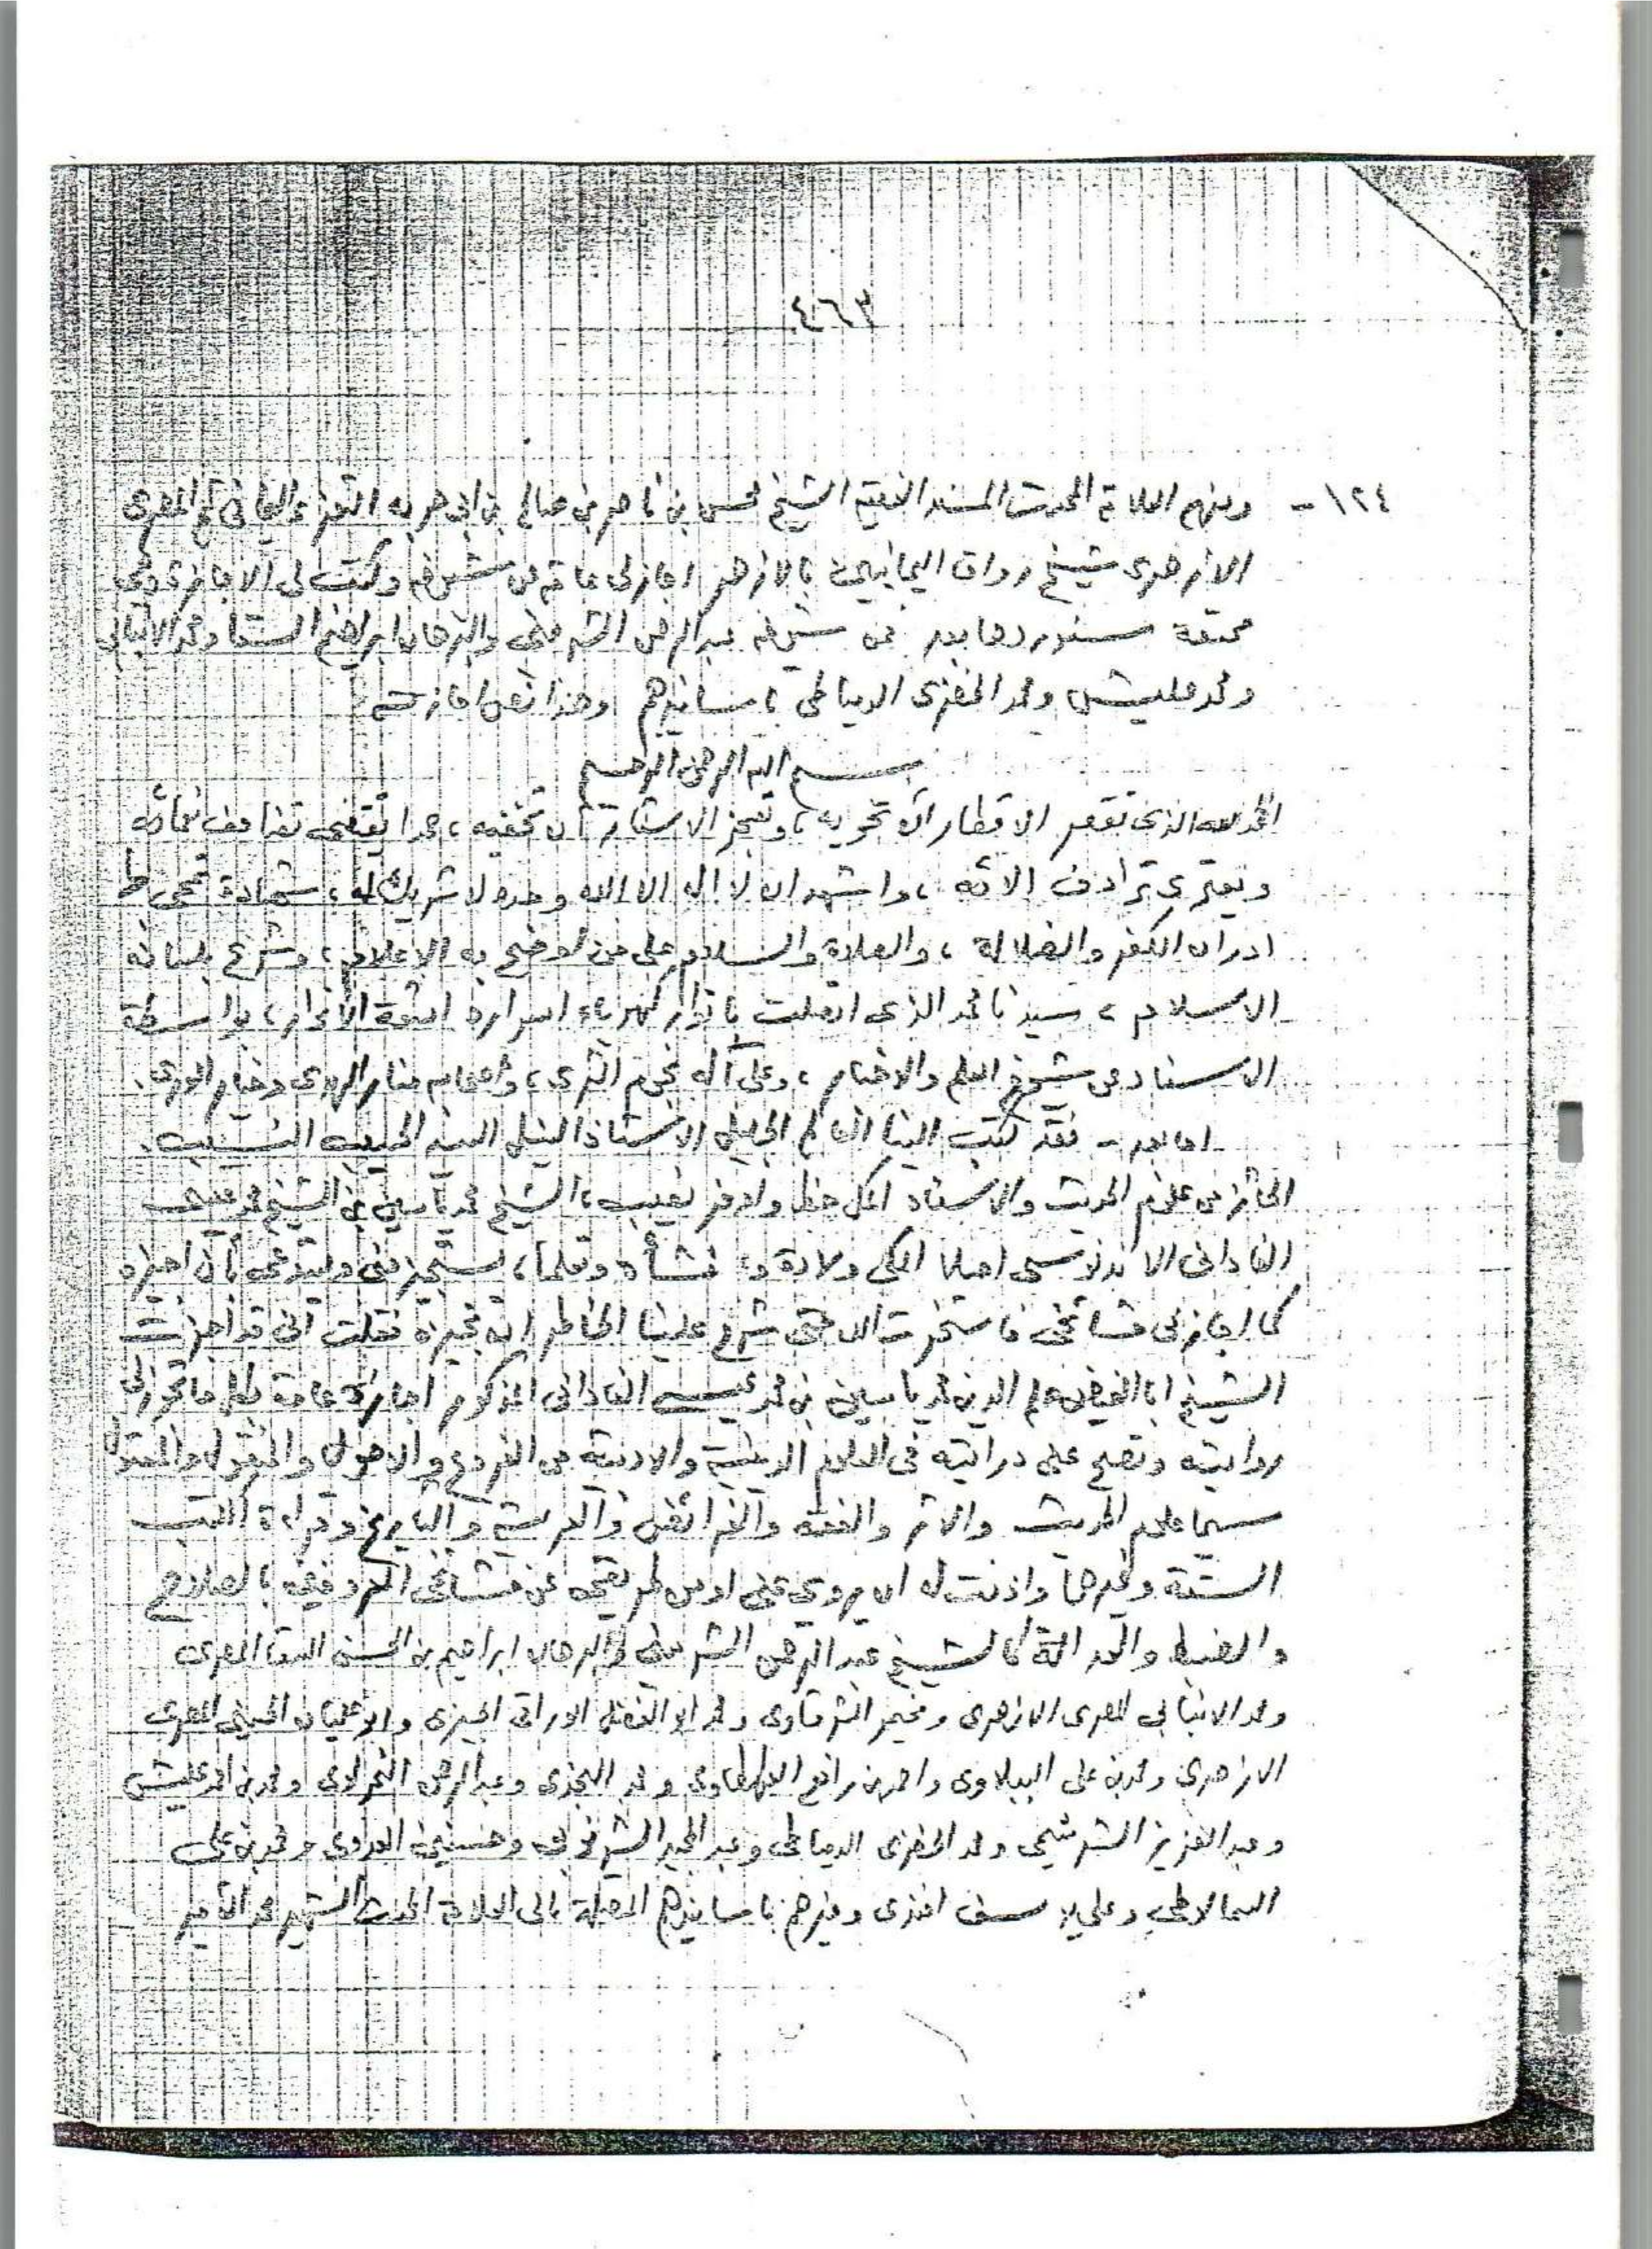 ٤٦٣
١٢٤ - ومنهم العلامة المحدث المسند الفقيه الشيخ محسن بن ناصر بن صالح بن ابي حربه التعزي اليماني ثم المصري
الازهري شيخ رواق اليمانيين بالازهر اجازلي عامة عن شيوخه وكتب لي الاجازة وهي
عن شيخه عبد الرحمن الشربيني والبرهان ابراهيم السقا ومحمد الانبابي
ومحمد عليش ومحمد الخضري الدمياطي باسانيدهم وهذا نص اجازته
بسم الله الرحمن الرحيم
الحمد لله الذي تقصر الاقطار ان تحويه، وتعجز الاستار ان تخفيه، حمدا يقتضي تضاعف نعمائه
ويمتري ترادف الائه، واشهد ان لا اله الا الله وحده لا شريك له، شهادة تمحي بها
ادران الكفر والضلالة، والصلاة والسلام على من لوضح به الاعلام، وشرع بلسانه
الاسلام، سيدنا محمد الذي اتصلت بانوار كهرباء اسراره اشعة الأنوار، بواسطة
الاسناد عن شيوخ العلم والاخبار، وعلى آله نجوم الثرى، واصحابه منار الهدى وخيار الورى.
اما بعد - فقد كتب الينا العالم الجليل الاستاذ النبيل السيد الحسيب النسيب.
الحائز من علوم الحديث والاسناد اكمل حظ واوفر نصيب، الشيخ محمد ياسين بن الشيخ محمد عيسى
الفاداني الاندنوسي اصلا المكي ولادة و نشأة وتعلما، يستجيز مني ويستدعي بأن اجيزه
كما اجازلي مشائخي فاستخرت الله حتى شرح علينا الخاطر ان نجيزه فقلت اني قد اجزت
الشيخ ابا الفيض علم الدين محمد ياسين بن محمد عيسى الفاداني المذكور اجازة عامة بكل ما تجوز لي
روايته وتصح على درايته في العلوم الدينية والادبية من الفروع والاصول والمنقول والمعقول
سيما علوم الحديث والاثر والفقه والفرائض والعربية والتاريخ وقراءة الكتب
الستة وغيرها واذنت له ان يروي عني اوعن طريقتي عن مشائخي المعروفين بالصلاح
والضبط والعدالة كالشيخ عبد الرحمن الشربيني والبرهان ابراهيم بن الحسن السقا المصري
ومحمد الانبابي المصري الازهري ومخيمر الشرقاوي ومحمد ابو الفضل الوراقي الجيزي والو عليان الحسيني المصري
الازهري ومحمد بن علي الببلاوي واحمد بن رافع الطهطاوي ومحمد البجزي وعبد الرحمن البحراوي ومحمد بن احمد عليش
وعبد العزيز الشرشيمي ومحمد الخضري الدمياطي وعبد المجيد الشرنوبي وحسنين العدوي ومحمد بن علي
السمالاطي وعلي يوسف افندي وغيرهم باسانيدهم المتصلة بالى العلامة المحدث الشهير محمد الأمير